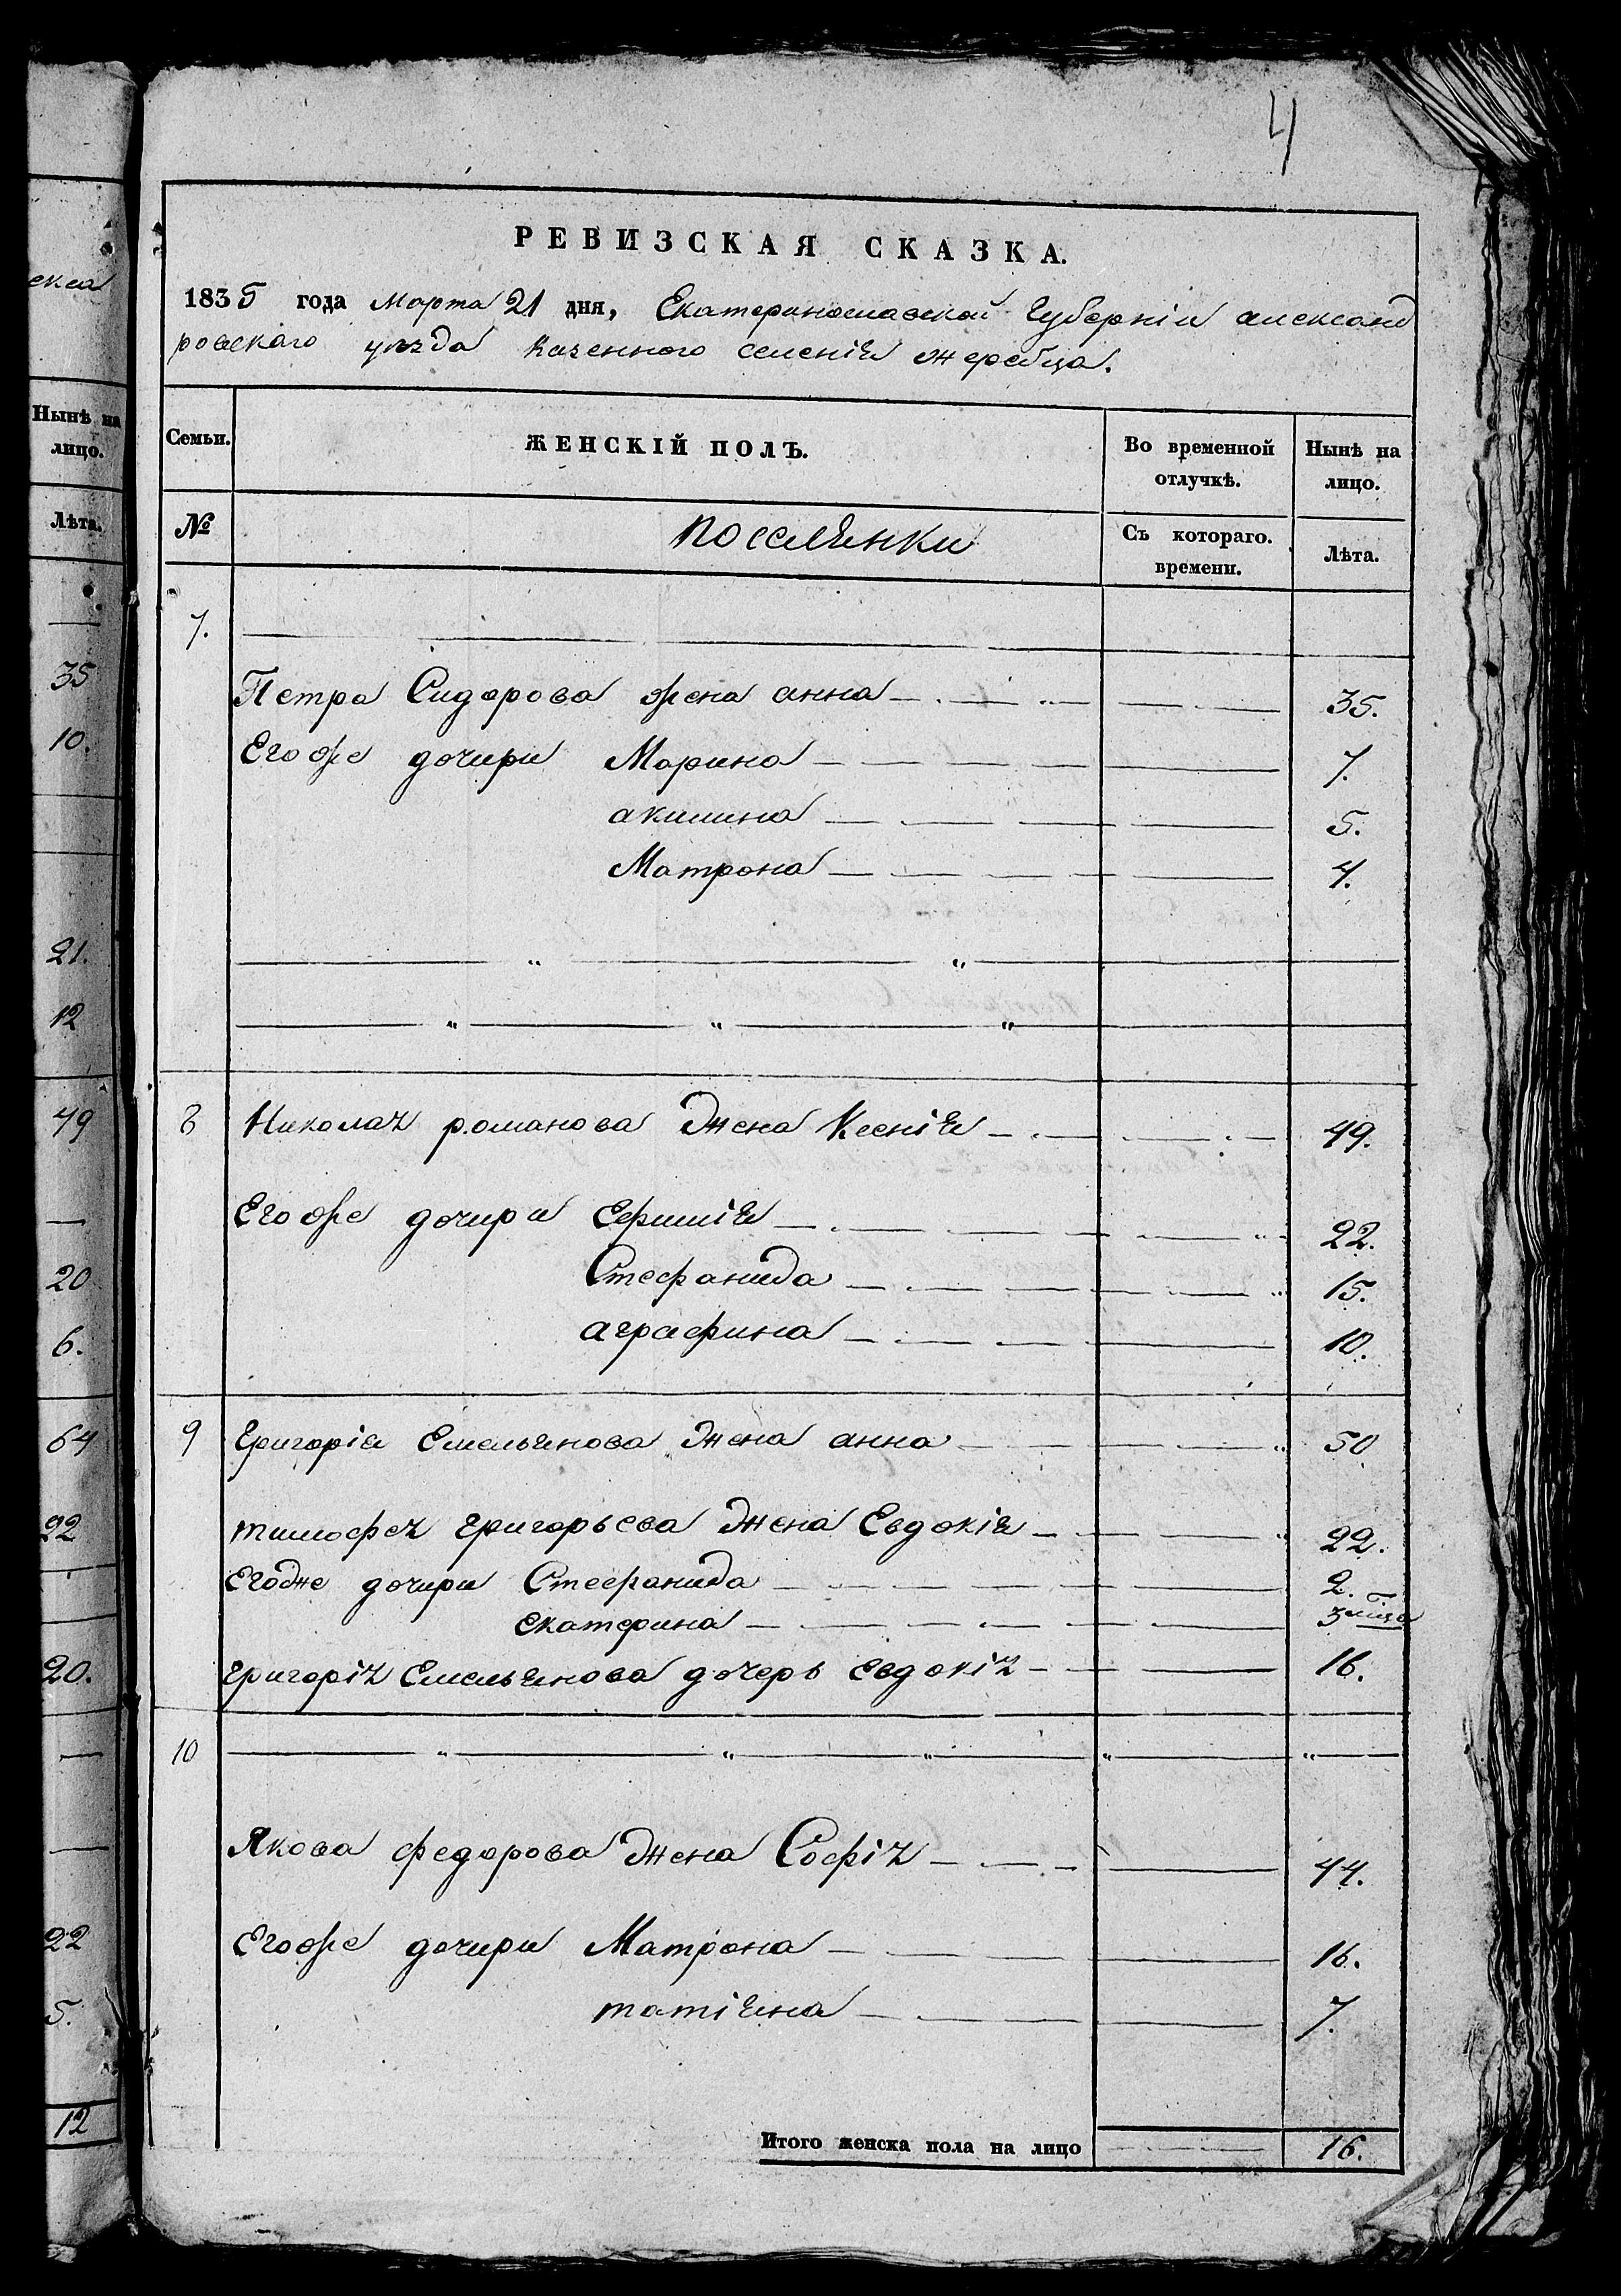 4
РЕВИЗСКАЯ СКАЗКА.
1835 года Марта 21 дня, Екатеринославской Губерніи александ
ровскаго уезда казенного селенія жеребца.
Семьи. ЖЕНСКІЙ ПОЛЪ. Во временной отлучкѣ. Нынѣ на лицо.
№ поселянки Съ котораго. времени. Лѣта.
7.
Петра Сидорова жена анна 35.
Егоже дочири Марина 7.
акилина 5.
Матрона 4.
8 Николая романова жена Ксенія 49.
Егоже дочири Ефимія 22.
Стефанида 15.
аграфина 10.
9 Григорія Емельянова жена анна 50
тимофея григорьева жена Евдокія 22.
Егоже дочири Стефанида 2.
екатерина 3
григорія Емельянова дочерь евдокія 16.
10
Якова федорова жена Софія 44.
Егоже дочири Матрона 16.
татіяна 7.
Итого женска пола на лицо 16.
екса
Нынѣ на
лицо.
Лѣта.
35
10.
21.
12
49
20
6.
64
22
20.
22
5.
12